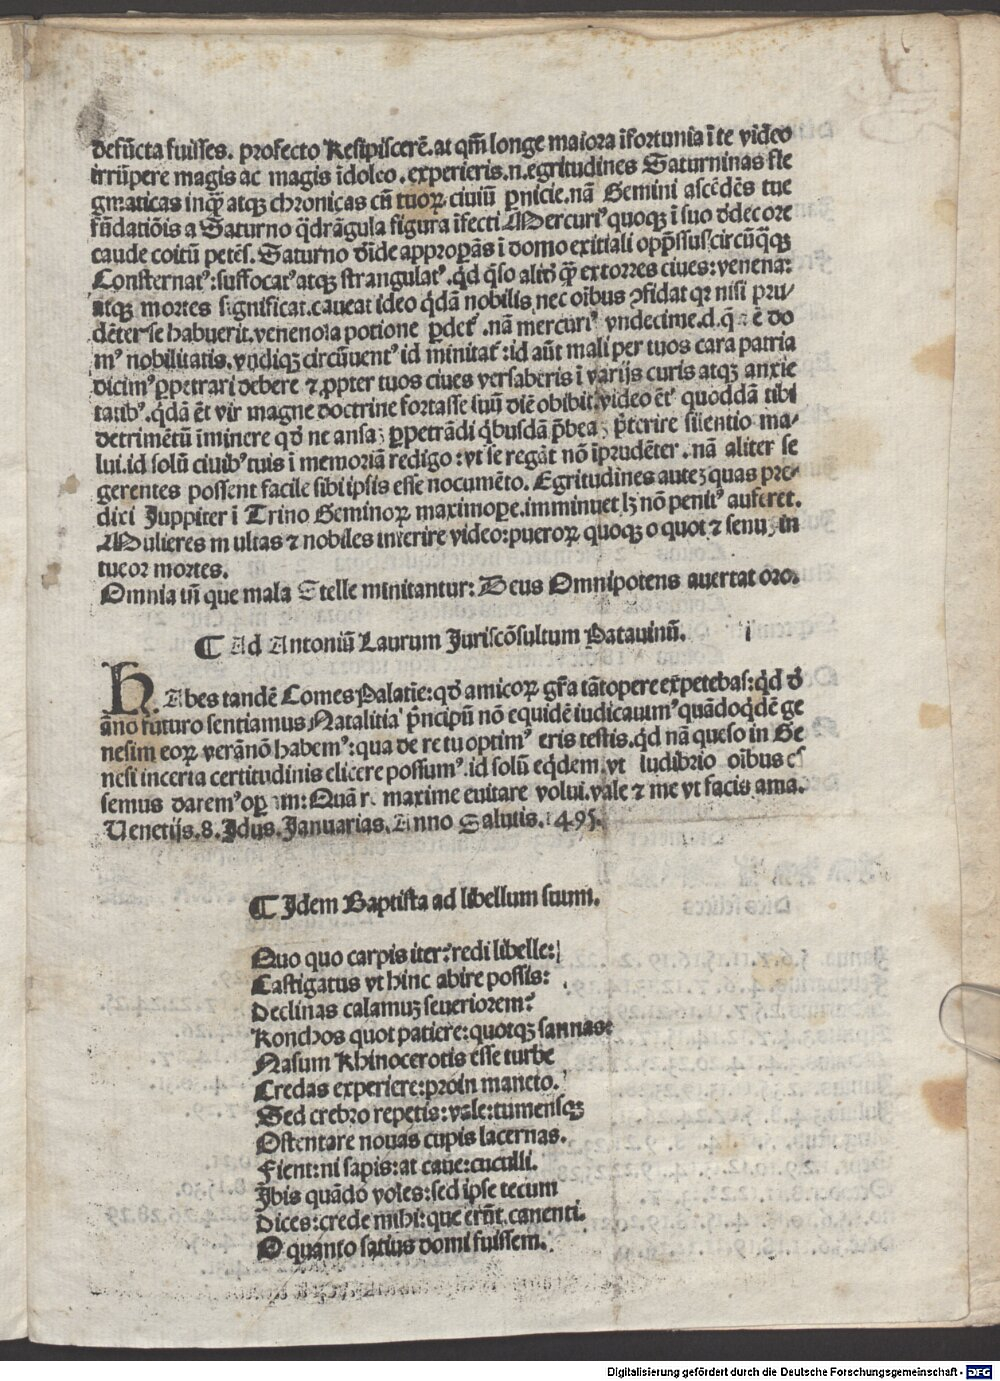 defūcta fuisses. profecto Resipiscerē.at qm̄ longe maiora īfortunia ī te video
irrūpere magis ac magis īdoleo.experieris.n.egritudines Saturninas fle
gmaticas inqꝫ atqꝫ chronicas cū tuoꝝ ciuiū ꝑnicie.nā Gemini ascēdēs tue
fūdatiōis a Saturno q̄drāgula figura īfecti.Mercuriꝰ quoqꝫ ī suo dedecore
caude coitū petēs.Saturno deīde appropās ī domo exitiali opp̄ssus:circūq̄qꝫ
Consternatꝰ:suffocatꝰ atqꝫ strangulatꝰ.qd q̄so aliud qꝫ extorres ciues:venena:
atqꝫ mortes significat.caueat ideo qdā nobilis nec oībus ꝯfidat qꝛ nisi pru/
dēter se habuerit.venenosa potione ꝑdet᷑.nā mercuriꝰ vndecime.d. ē do
mꝰ nobilitatis.vndiqꝫ circūuentꝰ id minitat᷑:id aūt mali per tuos cara patria
dicimꝰ ꝑpetrari debere ⁊ ꝓpter tuos ciues versaberis ī varijs curis atqꝫ anxie
tatibꝰ.qdā ēt vir magne doctrine fortasse suū diē obibit.video ēt quoddā tibi
detrimētū īminere qd ne ansaꝫ ꝑpetrādi qbusdā p̄beaꝫ p̄terire silentio ma/
lui.id solū ciuibꝰ tuis ī memoriā redigo:vt se regāt nō īprudēter.nā aliter se
gerentes possent facile sibi ipsis esse nocumēto.Egritudines auteꝫ quas pre/
dixi Juppiter ī Trino Geminoꝝ maximope.imminuet lꝫ nō penitꝰ auferet.
Mulieres multas ⁊ nobiles interire video:pueroꝝ quoqꝫ o quot ⁊ senuꝫ in
tueor mortes.
Omnia tn̄ que mala Stelle minitantur: Deus Omnipotens auertat oro.
¶ Ad Antoniū Laurum Juriscōsultum Patauinū.
HAbes tandē Comes Palatie:qd amicoꝝ gr̄a tātopere exꝑetebas:qd de
āno futuro sentiamus Natalitia p̄ncipū nō equidē iudicauimꝰ quādoqdē ge
nesim eoꝝ verā nō habemꝰ:qua de re tu optimꝰ eris testis.qd nā queso in Ge
nesi incerta certitudinis elicere possumꝰ.id solū eqdem.vt ludibrio oībus es
semus daremꝰ opam:Quā rē maxime euitare volui.vale ⁊ me vt facis ama.
Venetijs.8.Idus.Januarias.Anno Salutis.1495.
¶ Idem Baptista ad libellum suum.
Quo quo carpis iter:redi libelle:
Castigatus vt hinc abire possis:
Declinas calamuꝫ seueriorem?
Ronchos quot patiere:quotqꝫ sannas:
Nasum Rhinocerotis esse turbe
Credas experiere:proin maneto.
Sed crebro repetis:vale:tumensqꝫ
Ostentare nouas cupis lacernas.
Fient:ni sapis:at caue:cuculli.
Ibis quādo voles:sed ipse tecum
Dices:crede mihi:que erūt canenti.
O quanto satius domi fuissem.
Digitalisierung gefördert durch die Deutsche Forschungsgemeinschaft - DFG